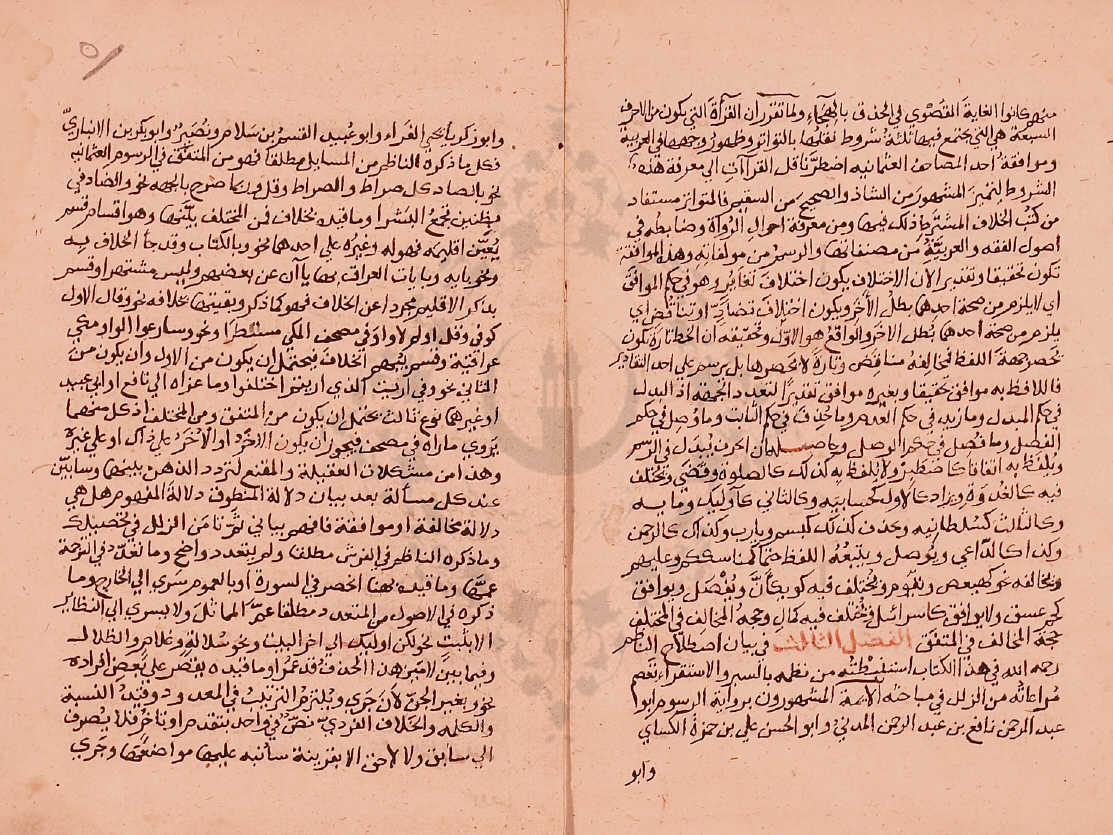 منهم كانوا الغاية القصوى في الحذق بالهجاء ولما تقرر ان القرأة التي يكون من الاحرف
السبعة هي التي يجتمع فيها ثلثة شروط نقلها بالتواتر وظهور وجهها في العربية
وموافقة احد المصاحف العثمانيه اضطر ناقل القراآت الي معرفة هذه
الشروط لتميز المشهور من الشاذ والصحيح من السقيم فالمتواتر مستفاد
من كتب الخلاف المشتهرة بذلك فيها ومن معرفة احوال الرواة وضابطه في
اصول الفقه والعربية من مصنفاتها والرسم من مولفاته وهذه الموافقة
تكون تحقيقا وتقديرا لان الاختلاف يكون اختلاف تغاير وهو في حكم الموافق
اي لا يلزم من صحة احدهما بطل الاخر ويكون اختلاف تضاد او تناقض اي
يلزم من صحة احدهما بطل الاخر والواقع هو الاول وتحقيقه ان الخط تارة يكون
تحصر جهة اللفظ فمخالفه مناقض وتارة لا يحصرها بل يرسم على احد التقادير
فاللافظ به موافق تحقيقا وبغيره موافق تقديرا لتعدد الجهة اذ البدل
في حكم المبدل وما زيد في حكم العدم وما حذف في حكم الثابت وما وصل في حكم
الفصل وما فصل في حكم الوصل وحاصله ان الحرف يبدل في الرسم
ويلفظ به اتفاقا كاصطبر ولا يلفظ به كذلك كالصلوة وقضي ويختلف
فيه كالغدوة ويزاد كالاول كحسابيه وكالثاني كاوليك ومايه
وكالثالث كسلطانيه وحذف كذلك كبسم ويارب وكذلك كالرحمن
وكذا كالداعي ويوصل ويتبعه اللفظ حتما كمناسككم وعليهم
ويخالفه نحو كهيعص ويقوم ويختلف فيه كويكأن ويفصل ويوافق
كحم عسق ولا يوافق كاسرائل ويختلف فيه كمال وجهة المخالف في المختلف
حجة المخالف في المتفق الفصل الثالث في بيان اصطلاح الناظم
رحمه الله في هذا الكتاب استنبطته من نظمه بالسبر والاستقراء تعصم
مراعاته من الزلل في مباحثه الايمة المشهورون برواية الرسوم ابو
عبد الرحمن نافع بن عبد الرحمن المدني وابو الحسن علي بن حمزة الكساي
وابو
وابو زكريا يحيي الفراء وابو عبيد القسم بن سلام ونصير وابو بكر بن الانباري
فكل ما ذكره الناظم من المسايل مطلقا فهو من المتفق في الرسوم العثمانيه
نحو بالصاد كل صراط والصراط وقل وان صرح بالجهة نحو والضاد في
بضنين تجمع البشرا وما قيده بخلاف فمن المختلف بينها وهو اقسام قسم
يعين اقليمه فهو له وغيره على احدهما نحو وبالكتاب وقد جأ الخلاف به
ونحو يابه وبايات العراق بها ياآن عن بعضهم وليس مشتهرا وقسم
يذكر الاقليم مجردا عن الخلاف فهو كما ذكر وبقيتها بخلافه نحو وقال الاول
كوفي وقل اولم لا واو في مصحف المكي مستطرا ونحو سارعوا الواو مكي
عراقية وقسم يبهم الخلاف فيحتمل ان يكون من الاول وان يكون من
الثاني نحو وفي اريت الذي اريتم اختلفوا وما عزاه الي نافع او ابي عبيد
او غيرهما نوع ثالث يحتمل ان يكون من المتفق ومن المختلف اذ كل منهما
يروي ما راه في مصحف فيجوز ان يكون الاخر او الاخر على ذاك او على غيره
وهذا من مشكلات العقيلة والمقنع لتردد الذهن بينها وسابين
عند كل مسألة بعد بيان دلالة المنطوق دلالة المفهوم هل هي
دلالة مخالفة او موافقة فافهم بياني نورا تامن الزلل في تحصيلك
وما ذكره الناظم في الفرش مطلقا ولم يتعدد واضح وما تعدد في الترجمة
عمها وما قيده بهنا انحصر في السورة او بالعموم سري الي الخارج وما
ذكره في الاصول من المتعدد مطلقا عم المماثل ولا يسري الي النظاير
الا بثبت نحو لكن اوليك الي اخر البيت ونحو سلالة وغلام والظلال
وفيما بين لامين هذا الحذف قد عمرا وما قيده يقصر على بعض افراده
نحو وبغير الجن لان جري ويلتزم الترتيب في المعدود وقيد النسبة
والكلمه والخلاف الفردي نص في واحد بتقدم او تاخر فلا يصرف
الي سابق ولا لاحق الا بقرينة سأنبه عليها مواضعها وجري